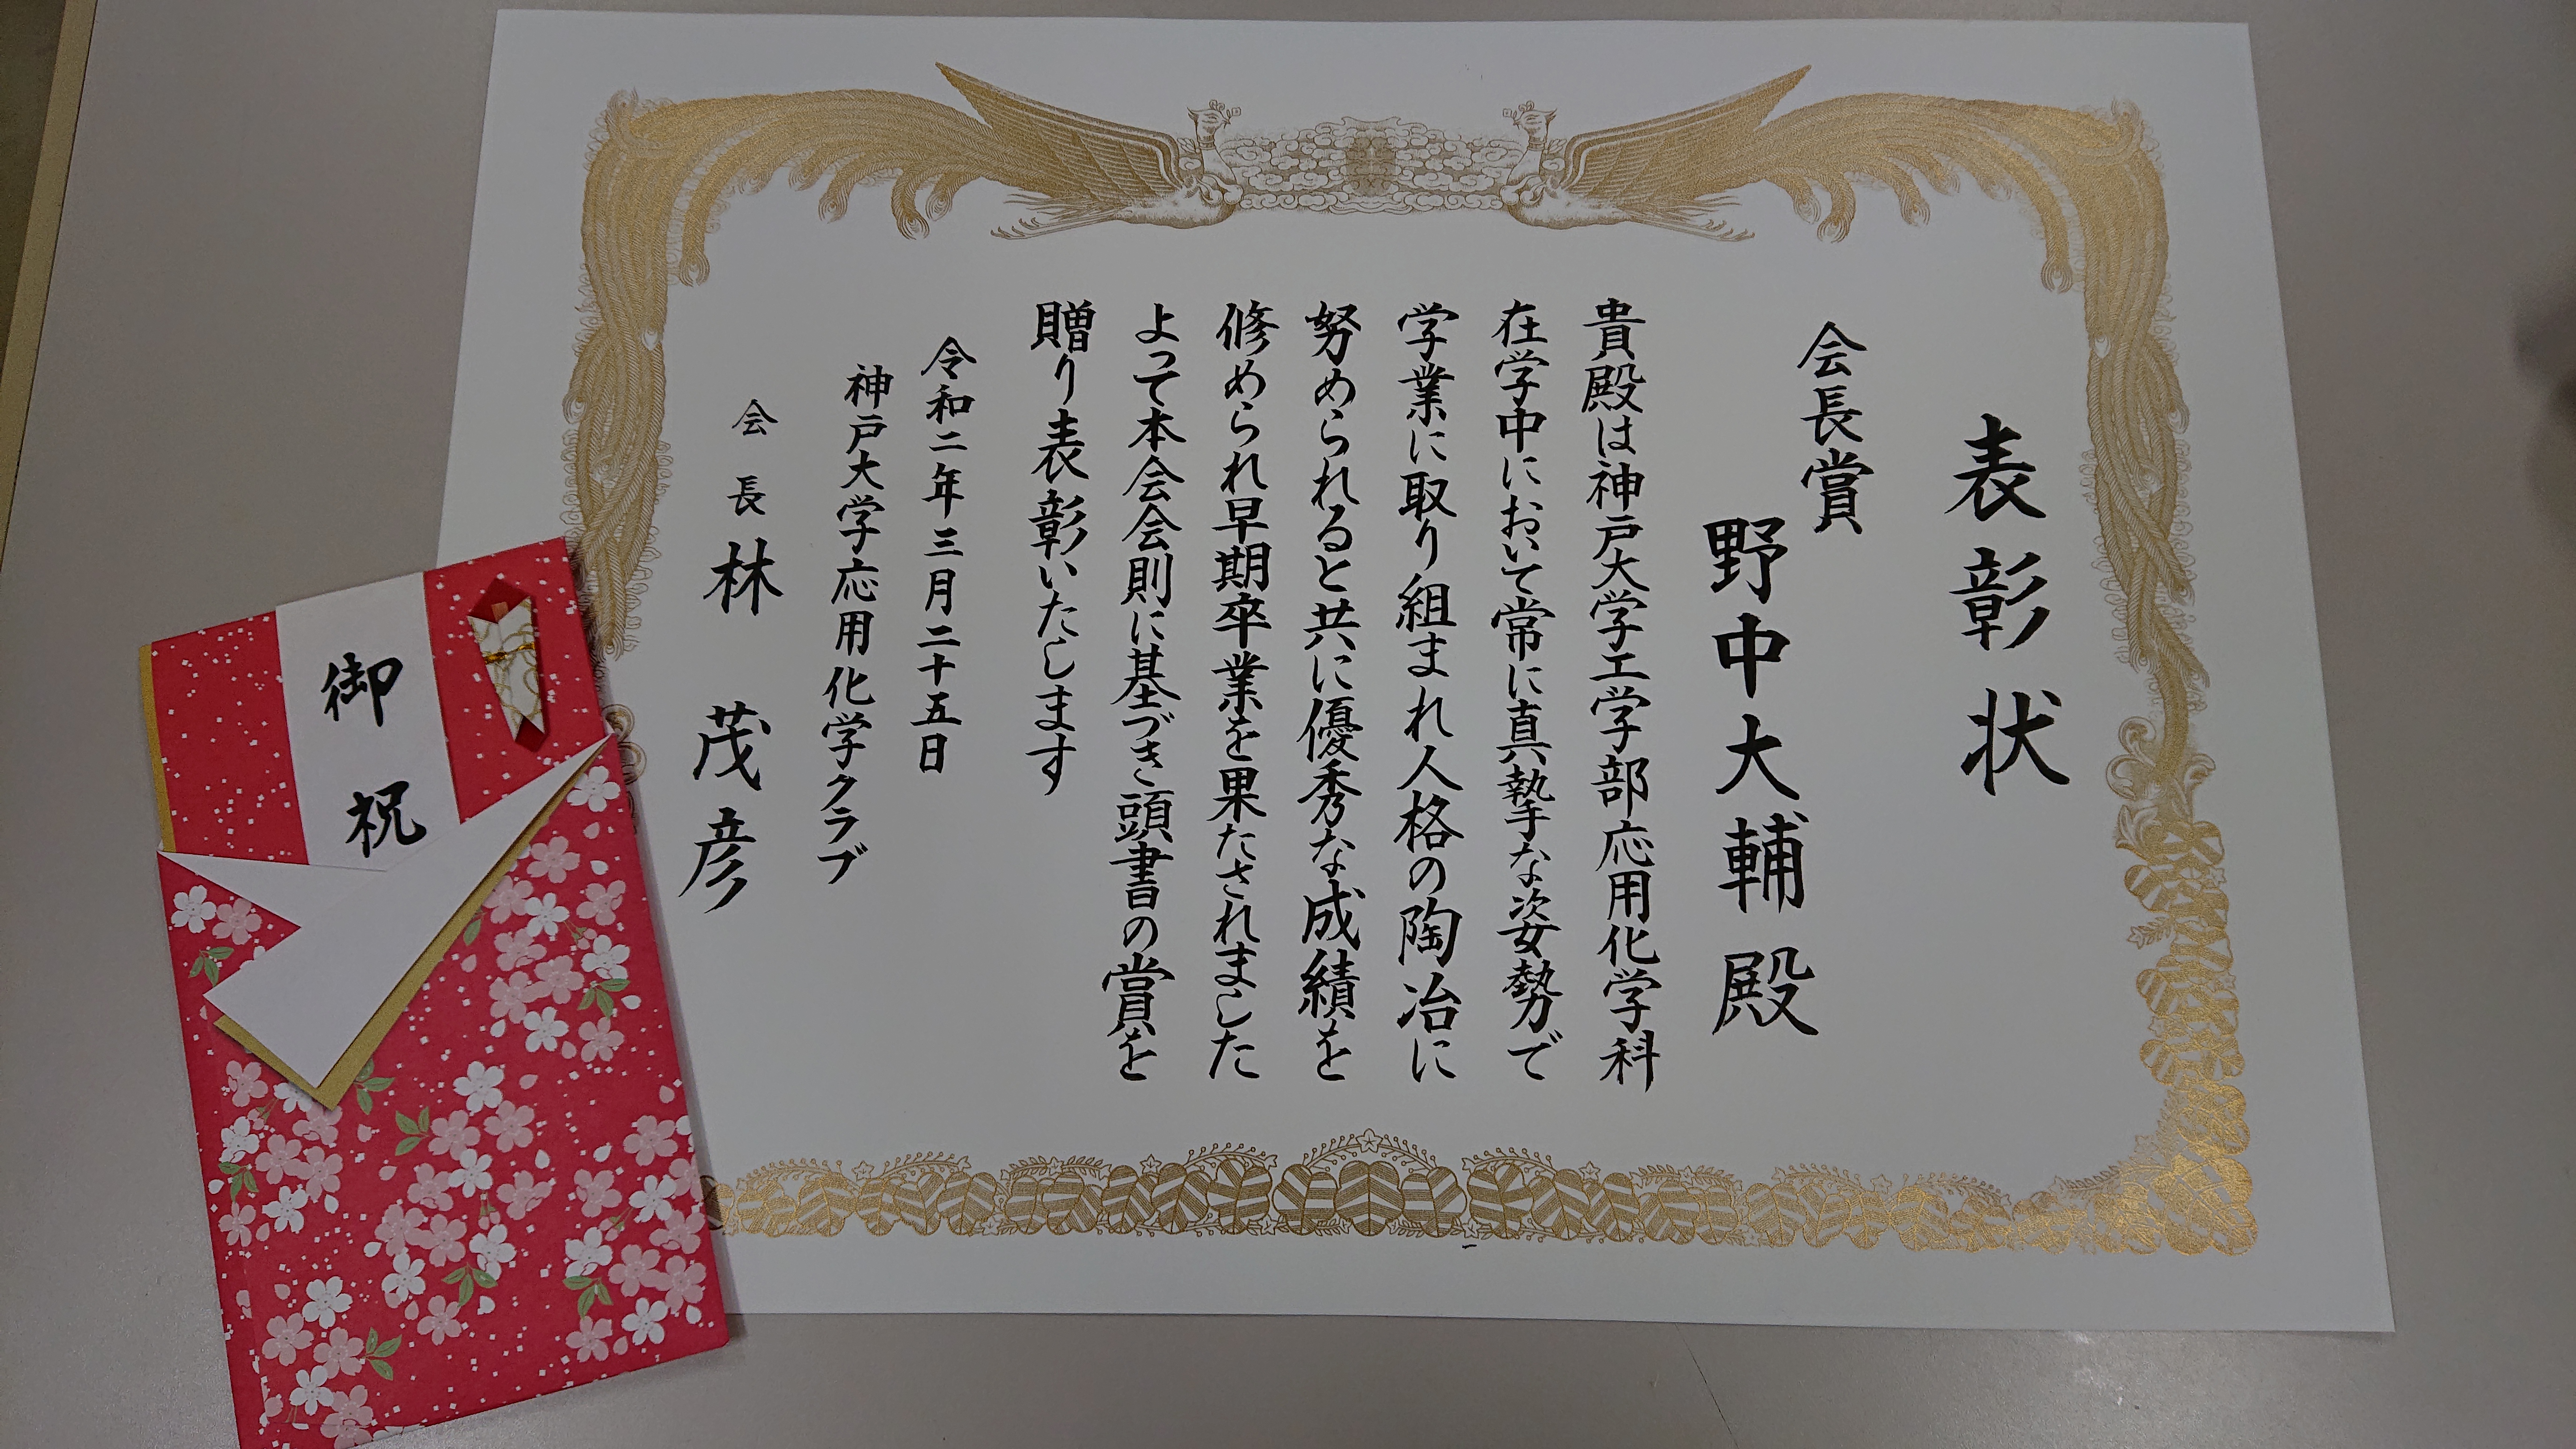 表彰状
会長賞
野中大輔殿
貴殿は神戸大学工学部応用化学科
在学中において常に真摯な姿勢で
学業に取り組まれ人格の陶冶に
努められると共に優秀な成績を
修められ早期卒業を果たされました
よって本会会則に基づき頭書の賞を
贈り表彰いたします
令和二年三月二十五日
神戸大学応用化学クラブ
会長 林 茂彦
御祝